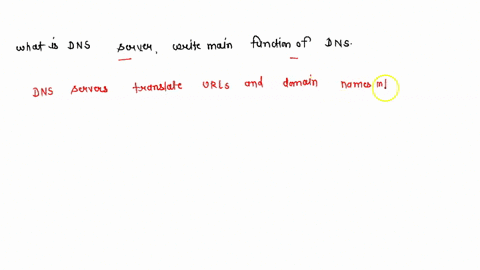 what is DNS server, write main function of DNS.
DNS servers translate URLs and domain names